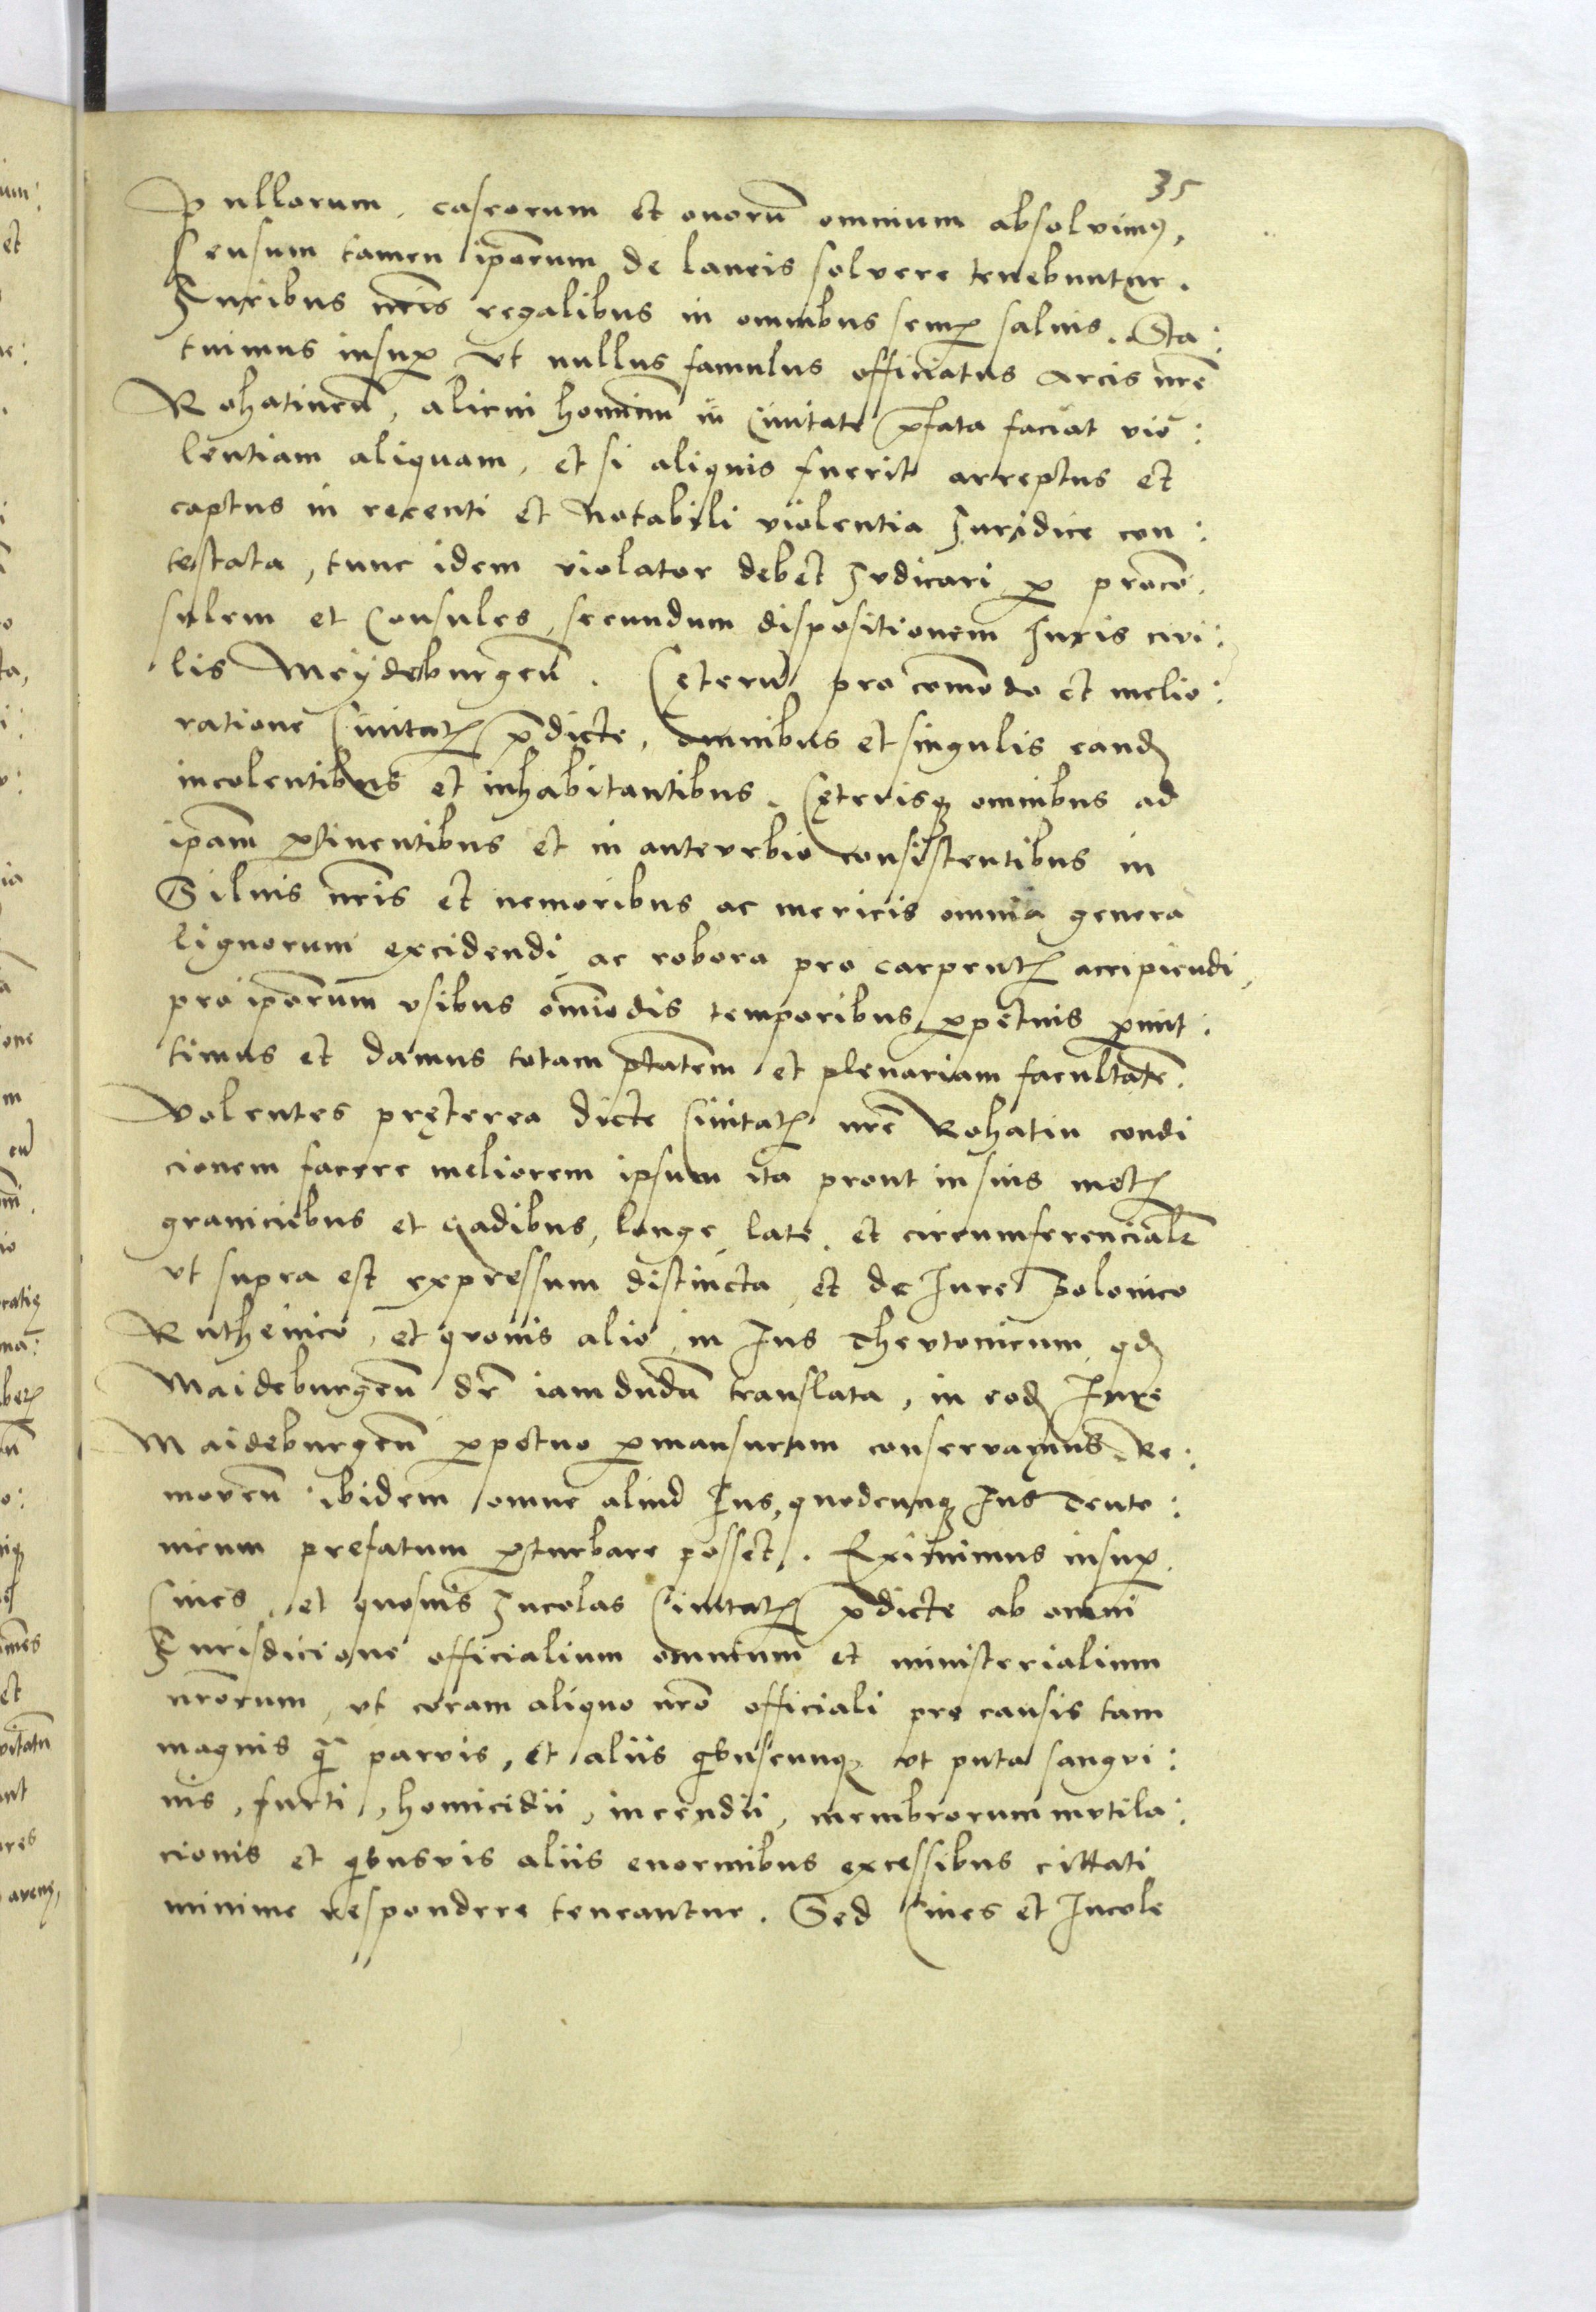 35
Pullorum, caseorum et ouorū omnium absoluimꝰ,
Censum tamen ip̄orum de laneis soluere tenebuntur.
Iuribus nr̄is regalibus in omnibus semꝑ saluis. Sta:
tuimus insuꝑ vt nullus famulus officiatus arcis nr̄e
Rohatineñ, alicui hominum in Ciuitate p̄fata faciat vio:
lentiam aliquam, et si aliquis fuerit arreptus et
captus in recenti et Notabili violentia Iuridice con:
testata, tunc idem violator debet Iudicari ꝑ procō:
sulem et Consules, secundum dispositionem Iuris ciui:
lis Meydeburgeñ. Cęterū pro com̄odo et melio:
ratione Ciuitatꝭ p̄dicte, omnibus et singulis eandꝫ
incolentibus et inhabitantibus. Cęterisqꝫ omnibus ad
ip̄am ꝑtinentibus et in anteurbio consistentibus in
Siluis nr̄is et nemoribus ac mericis omnia genera
lignorum excidendi, ac robora pro carpentꝭ accipiendi,
pro ip̄orum vsibus om̄iodis temporibus ꝑpetuis ꝑmit:
timus et damus totam p̄tatem et plenariam facultatē.
Volentes pręterea dicte Ciuitatꝭ nr̄e Rohatin condi
cionem facere meliorem ipsum ita prout in suis metꝭ
graniciebus et gadibus, longe, late, et circumferencialꝭ
vt supra est expressum distincta, et de Iure Polonico
Ruthenico, et quouis alio, in Ius Theutonicum, qdꝫ
Maideburgeñ dr̄ iamdudū translata, in eodꝫ Iure
Maideburgeñ ꝑpetuo ꝑmansuram conseruamus, Re:
moueñ ibidem omne aliud Ius, quodcunqꝫ Ius Teuto:
nicum prefatum ꝑturbare posset. Eximimus insuꝑ
Ciues, et quosuis Incolas Ciuitatꝭ p̄dicte ab omni
Iurisdicione officialium omnium et ministerialium
nr̄orum, vt coram aliquo nr̄o officiali pro causis tam
magnis q̄ paruis, et aliis qibuscunqꝫ vt puta sangui:
nis, furti, homicidii, incendii, membrorum mutila:
cionis et qibusuis aliis enormibus excessibus cittati
minime respondere teneantur. Sed Ciues et Incole